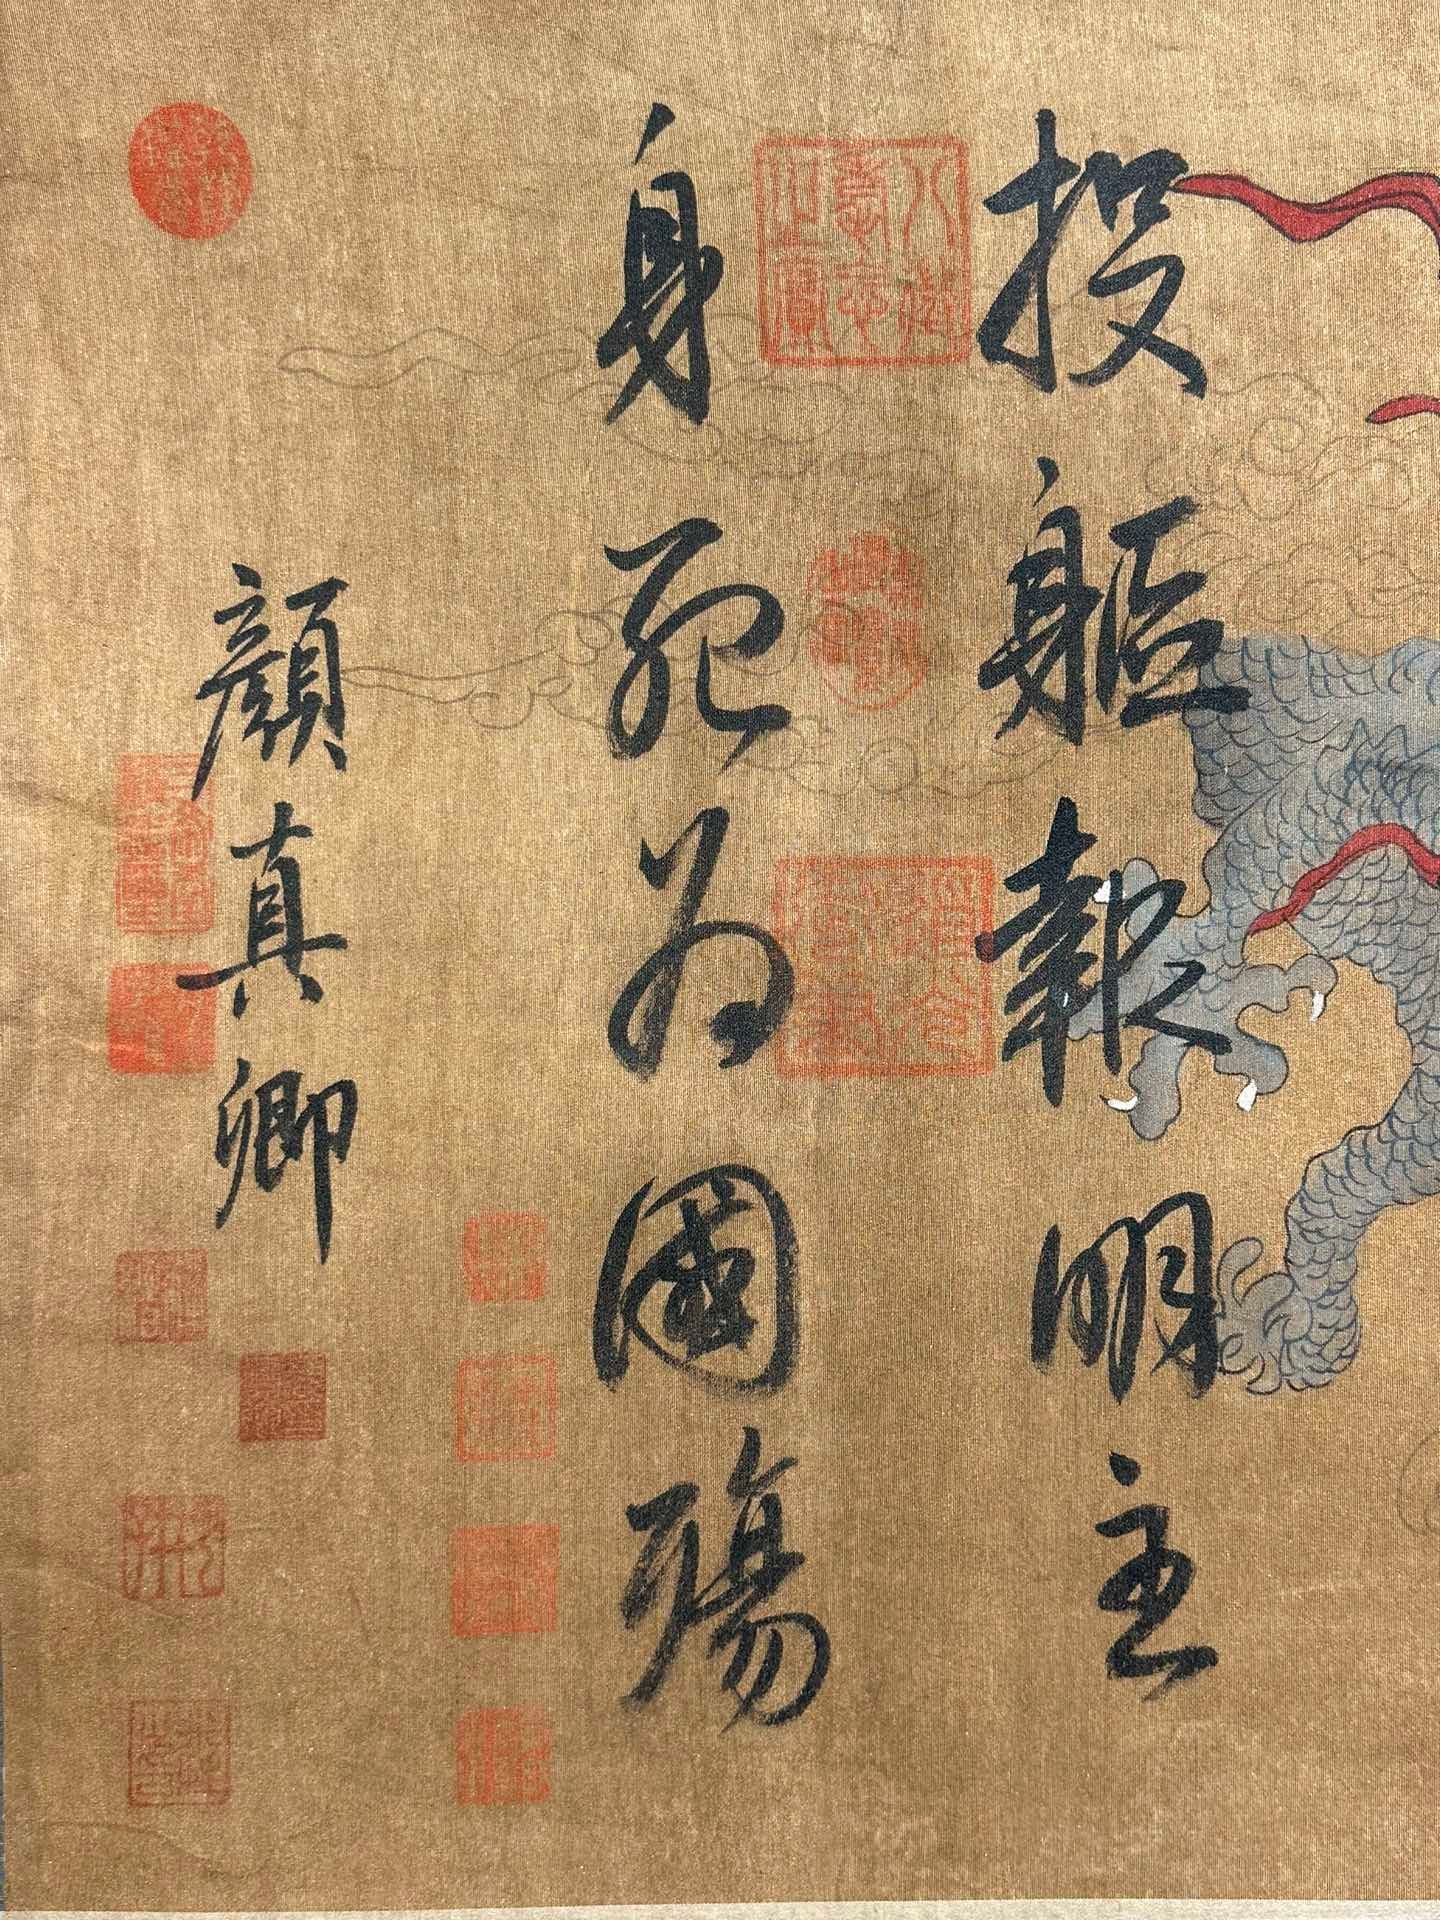 投軀報明主
身死為國殤
顏真卿